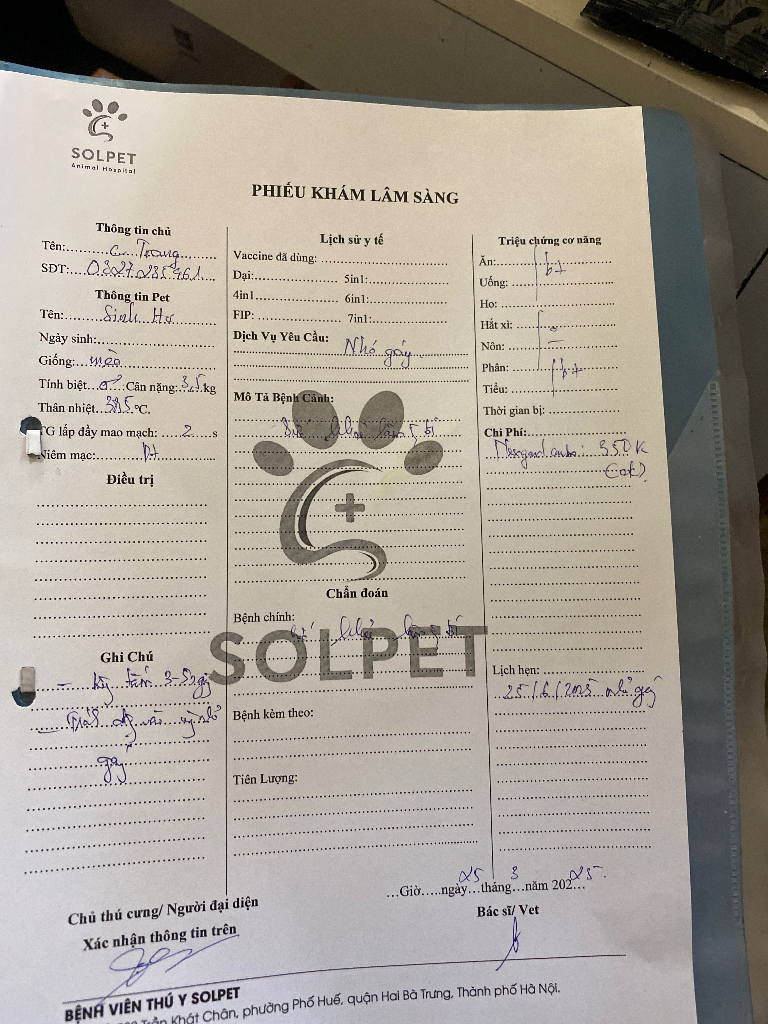 SOLPET
Animal Hospital
PHIẾU KHÁM LÂM SÀNG
Thông tin chủ
Tên: c. Trang
SĐT: 0327235961
Thông tin Pet
Tên: Sinh
Ngày sinh:
Giống: mèo
Tính biệt ♂ Cân nặng: 3,5 kg
Thân nhiệt 38.5 °C.
TG lấp đầy mao mạch: 2 s
Niêm mạc: bt
Điều trị
Ghi Chú
- tắm 3-5 ngày
- gáy
Lịch sử y tế
Vaccine đã dùng:
Dại: 5in1:
4in1 6in1:
FIP: 7in1:
Dịch Vụ Yêu Cầu:
Nhỏ gáy
Mô Tả Bệnh Cảnh:
SOLPET
Chẩn đoán
Bệnh chính:
Bệnh kèm theo:
Tiên Lượng:
Triệu chứng cơ năng
Ăn: bt
Uống:
Ho:
Hắt xì:
Nôn:
Phân: bt
Tiểu:
Thời gian bị:
Chi Phí:
350K
Lịch hẹn:
25/6/2025 nhỏ gáy
...Giờ.....ngày 25 tháng 3 năm 2025
Chủ thú cưng/ Người đại diện
Xác nhận thông tin trên
Bác sĩ/ Vet
BỆNH VIỆN THÚ Y SOLPET
Trần Khát Chân, phường Phố Huế, quận Hai Bà Trưng, Thành phố Hà Nội.